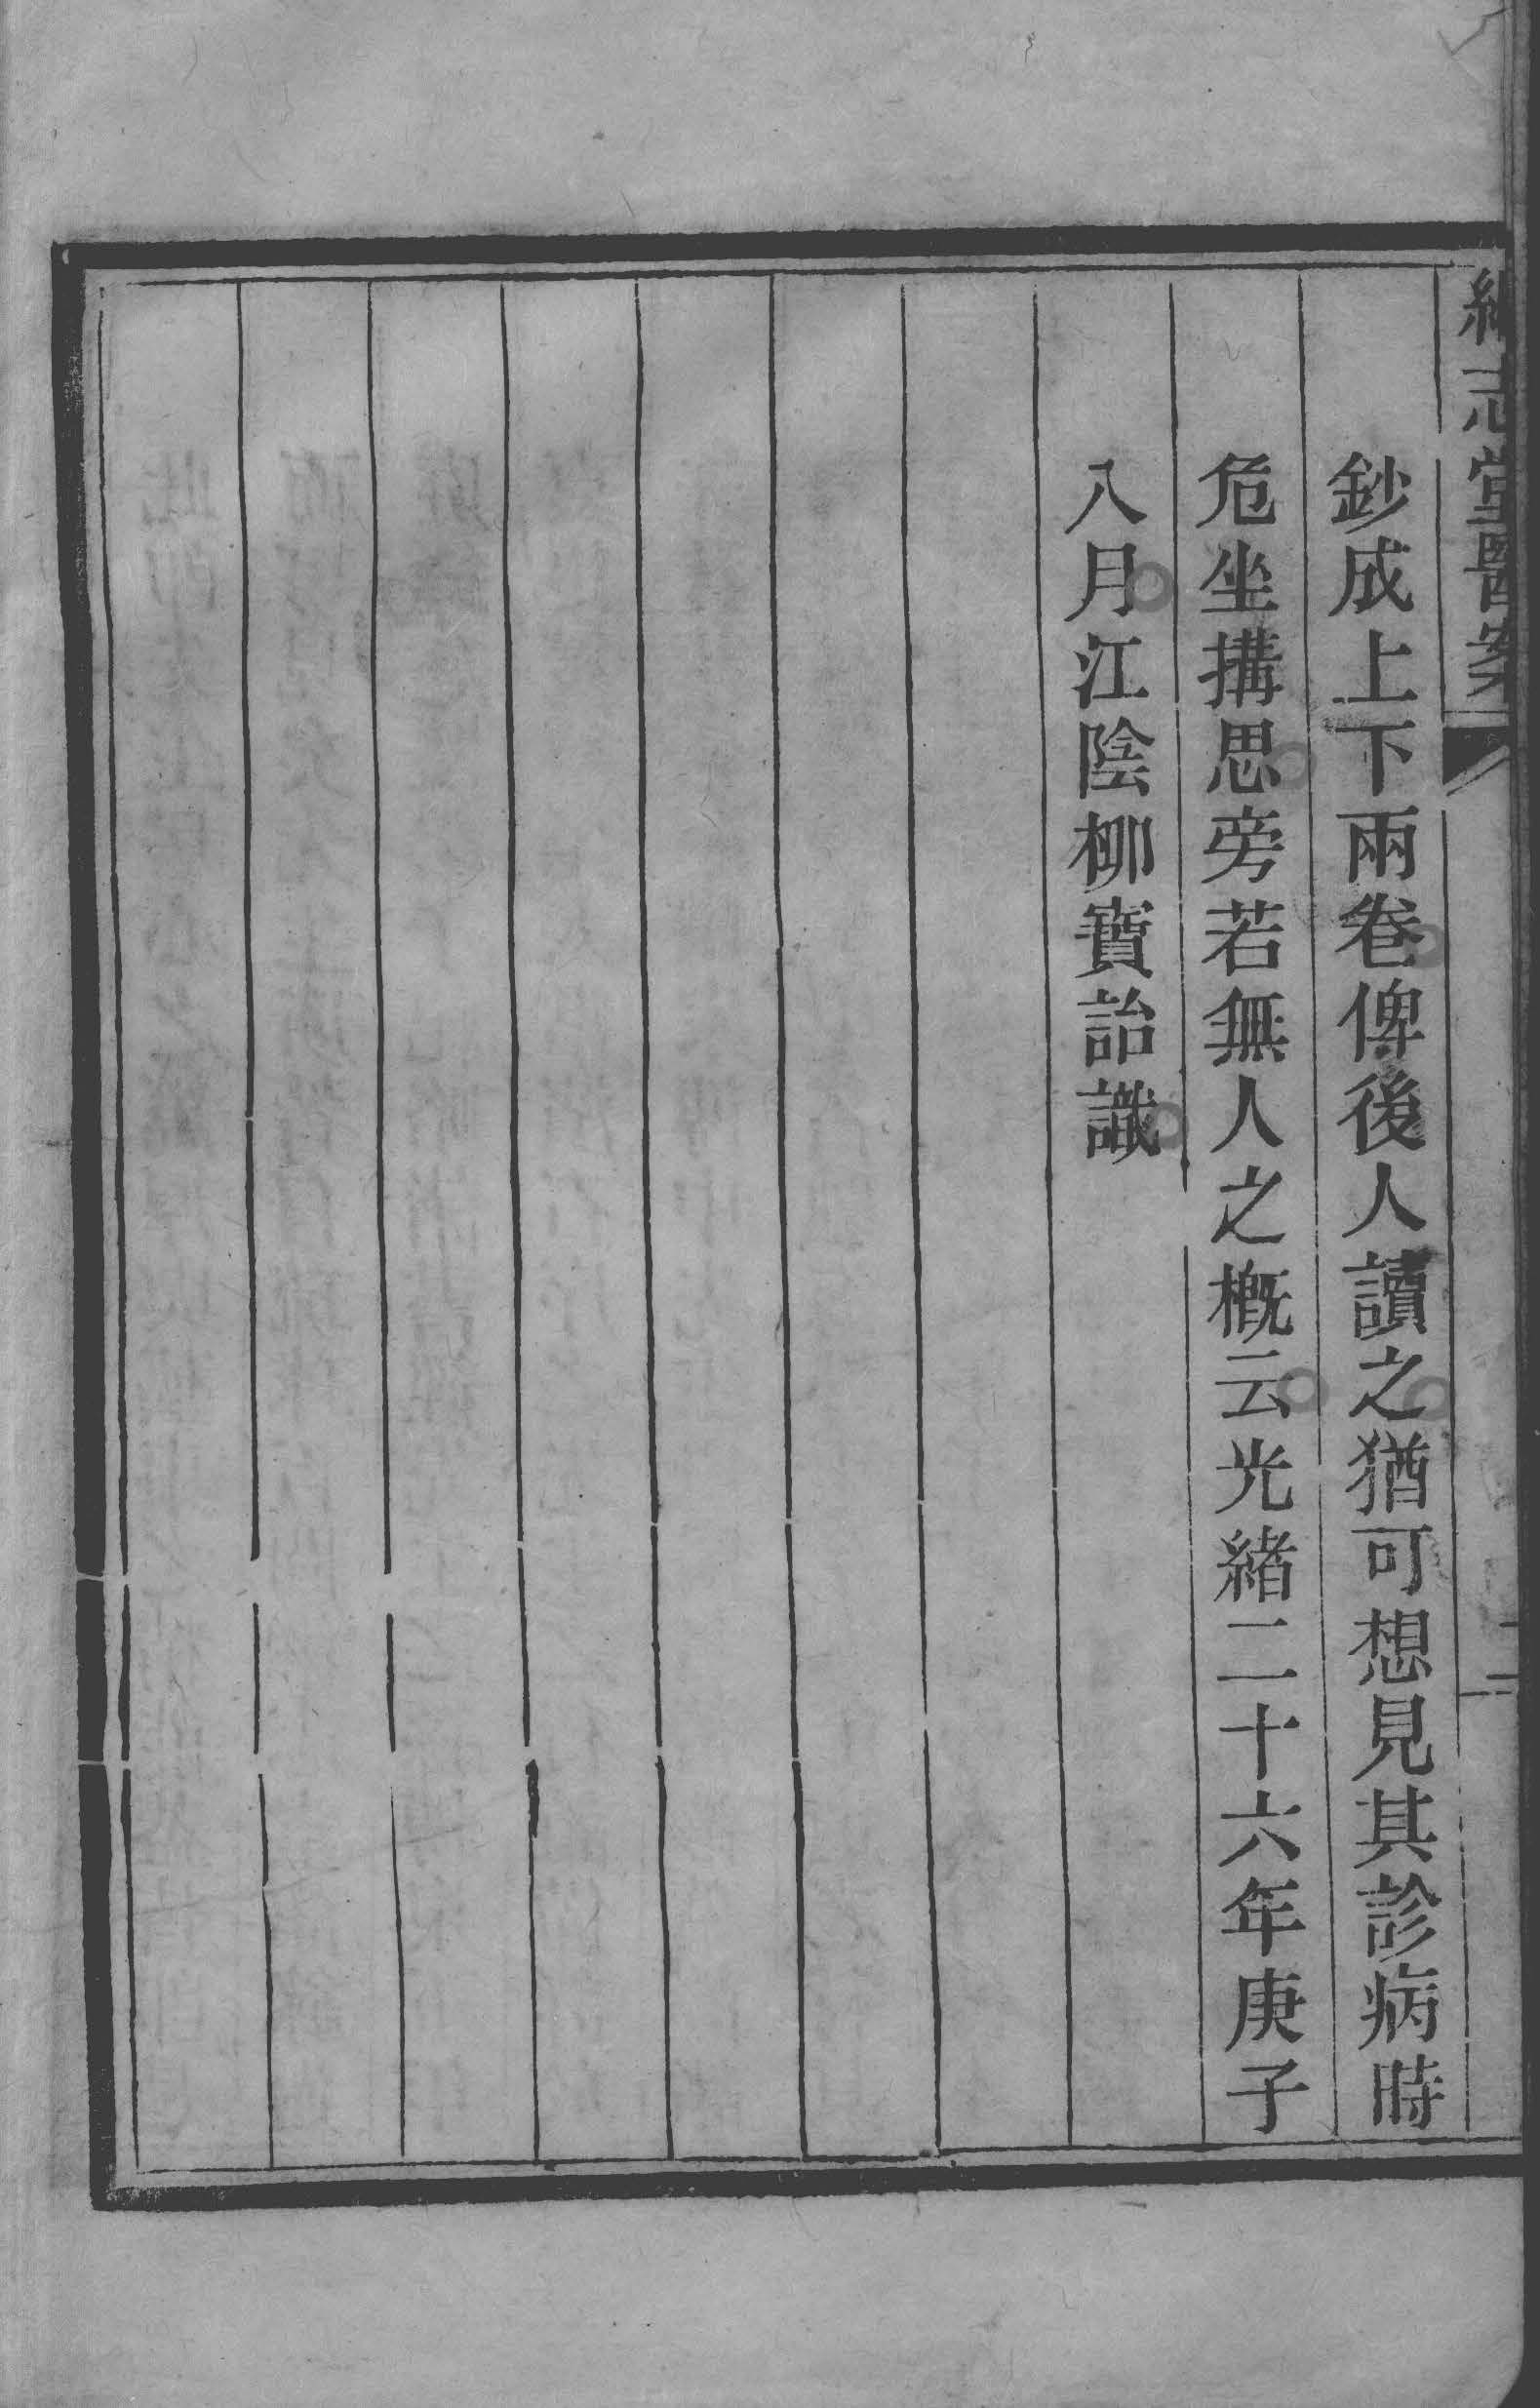 繼志堂醫案
二
鈔成上下兩卷俾後人讀之猶可想見其診病時
危坐搆思旁若無人之概云光緒二十六年庚子
八月江陰栁寶詒識